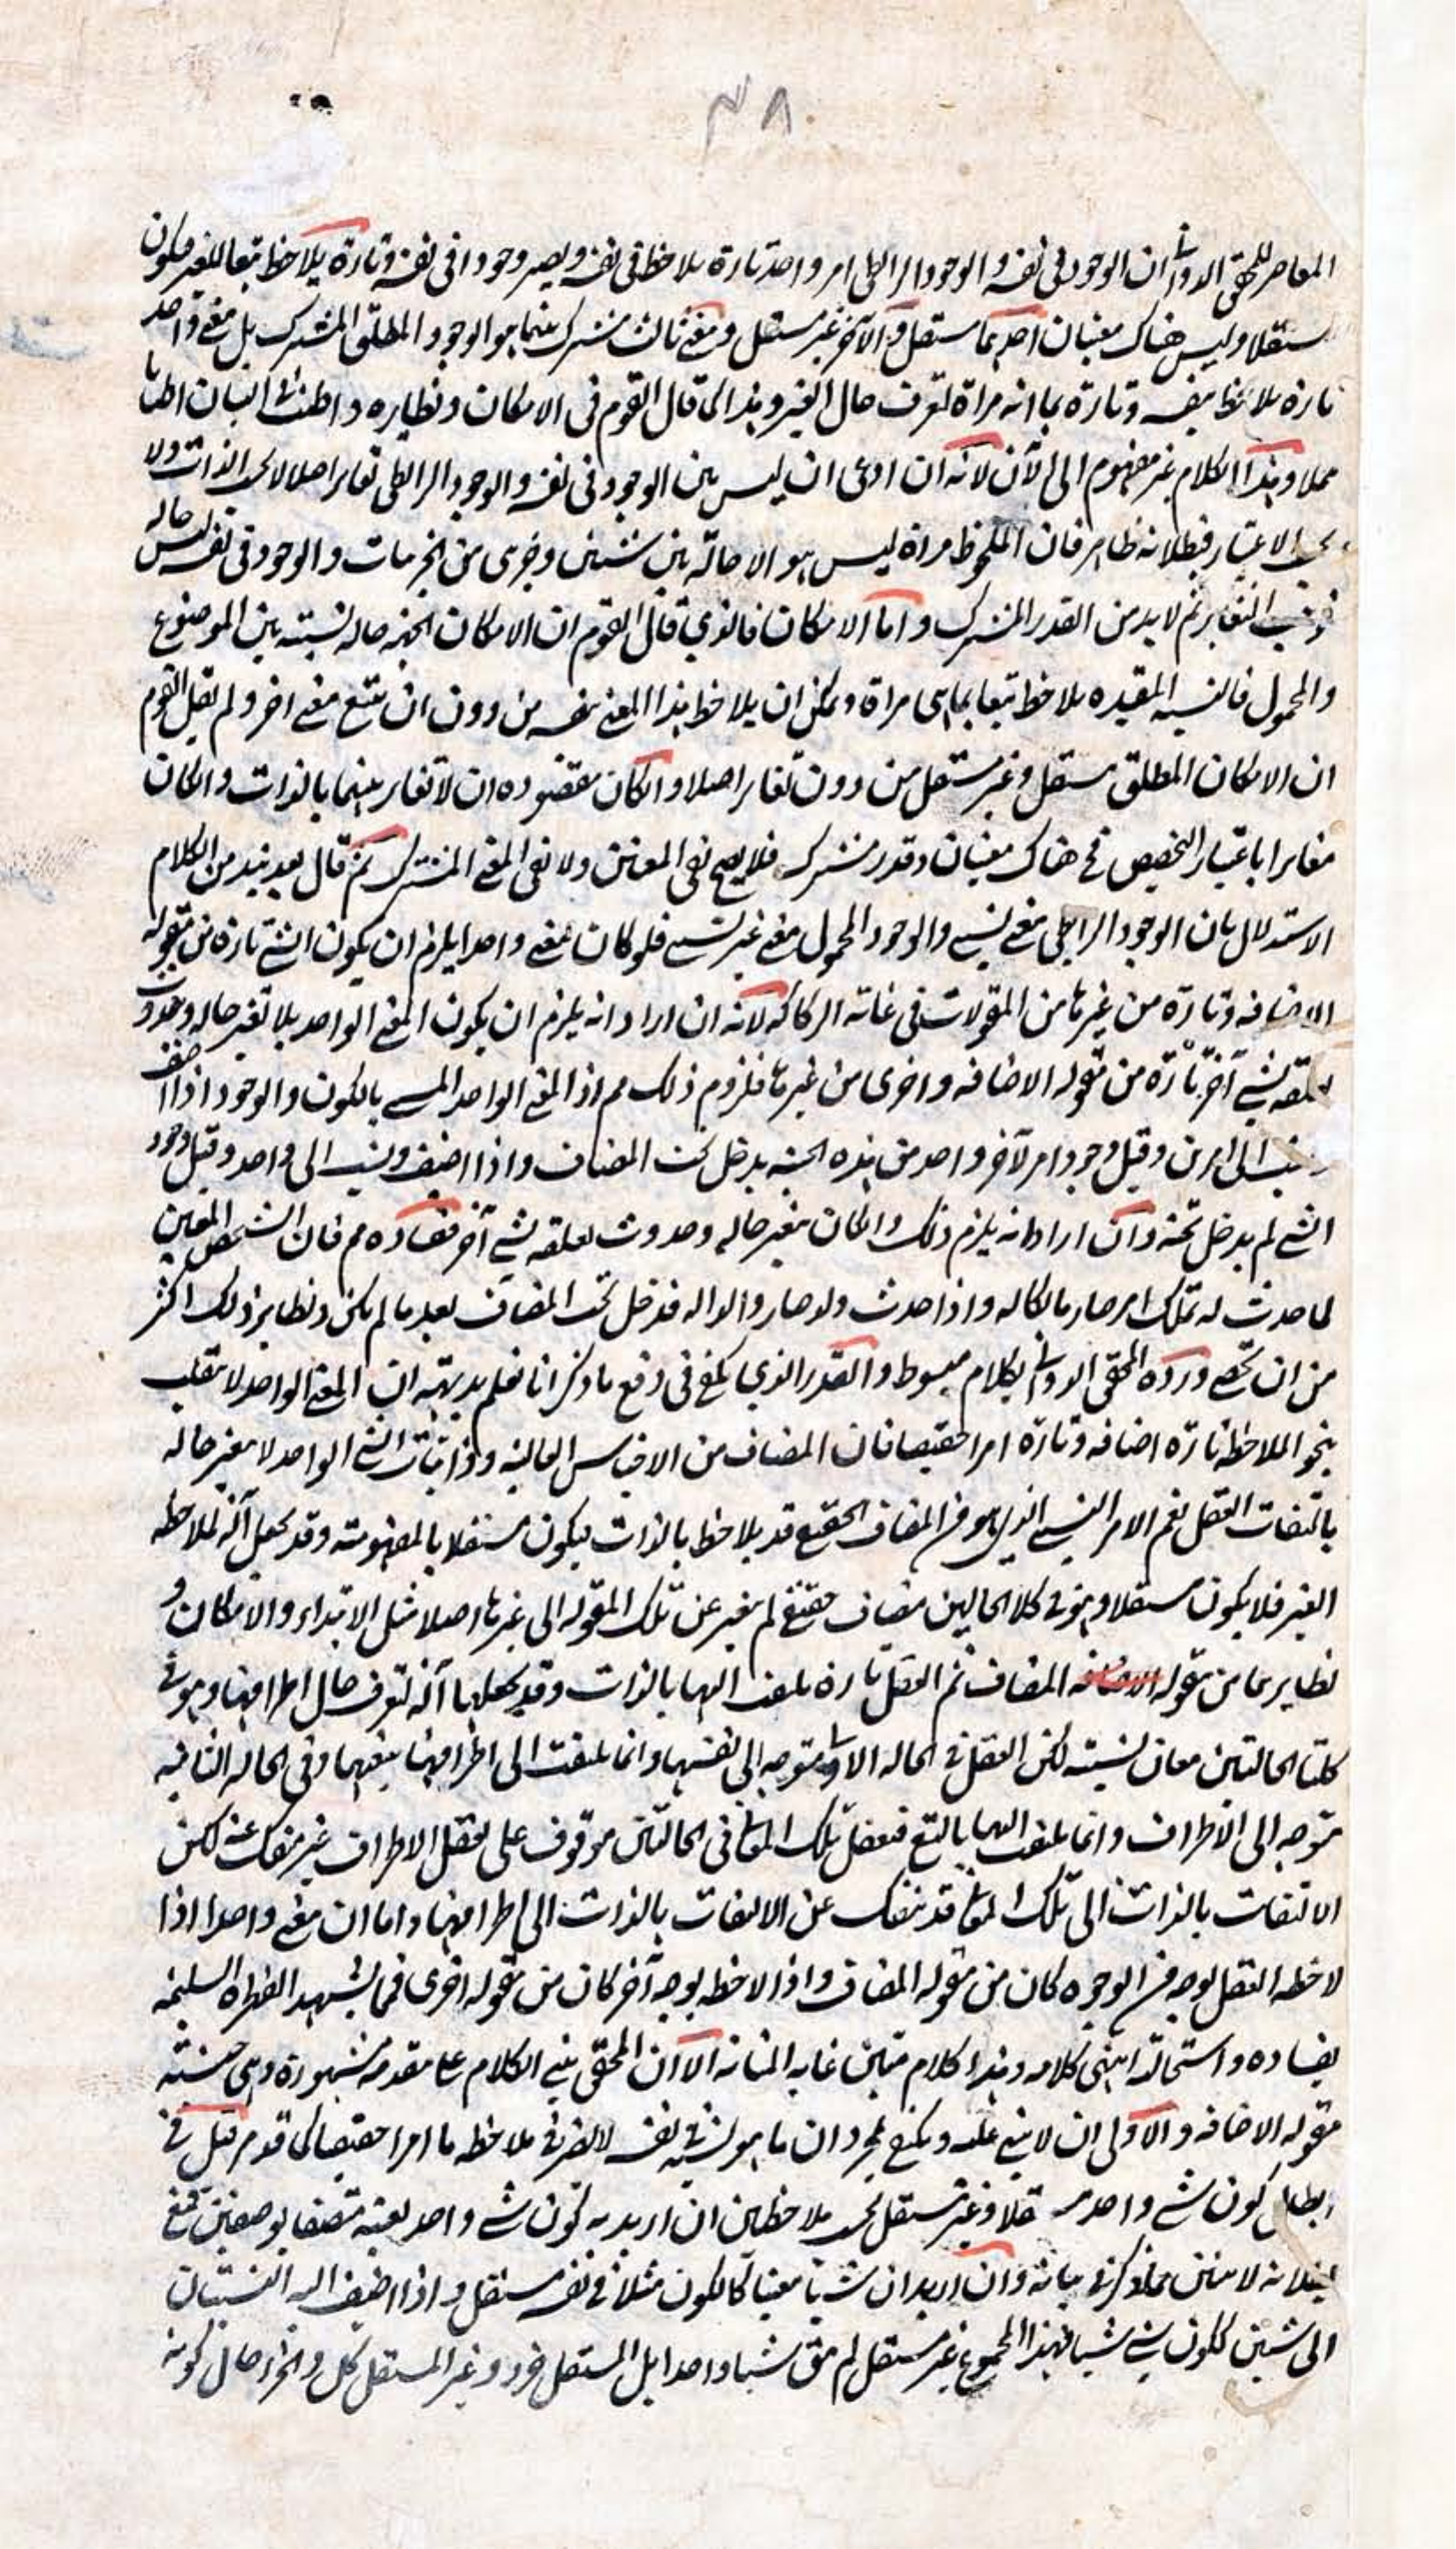 ٣٨
المعاصر للمحقق الدواني ان الوجود في نفسه والوجود الرابطي امر واحد تارة يلاحظ في نفسه ويصير وجودا في نفسه وتارة يلاحظ تبعا للغير فيكون
مستقلا وليس هناك معنيان احدهما مستقل والآخر غير مستقل ومعنى ثالث مشترك بينهما هو الوجود المطلق المشترك بل معنى واحد
تارة يلاحظ بنفسه وتارة بما انه مرآة لتعرف حال الغير وهذا كما قال القوم في الامكان ونظايره واطنب في البيان اطنابا
مملا وهذا الكلام غير مفهوم الى الآن لانه ان ادعى ان ليس بين الوجود في نفسه والوجود الرابطي تغاير اصلا لا بحسب الذات ولا
بحسب الاعتبار فبطلانه ظاهر فان الملحوظ مرآة ليس هو الا حالة بين شيئين وجزئي من الجزئيات والوجود في نفسه ليس حاله
فوجب التغاير ثم لا بد من القدر المشترك واما الامكان فالذي قال القوم ان الامكان الجهة حالة نسبته بين الموضوع
والمحمول فالنسبة المقيده يلاحظ تبعا بما هى مرآة ويمكن ان يلاحظ هذا المعنى بنفسه من دون ان يتبع معنى اخر ولم يقل القوم
ان الامكان المطلق مستقل وغير مستقل من دون تغاير اصلا وان كان مقصوده ان لا تغاير بينهما بالذات وان كان
مغايرا باعتبار التخصيص فح هناك معنيان وقدر مشترك فلا يصح نفي المعنيين ولا نفي المعنى المشترك ثم قال بعد نبذ من الكلام
الاستدلال بان الوجود الرابطي معنى نسبي والوجود المحمول معنى غير نسبي فلو كان معنى واحدا يلزم ان يكون الشئ تارة من مقوله
الاضافه وتارة من غيرها من المقولات في غاية الركاكة لانه ان اراد انه يلزم ان يكون المعنى الواحد بلا تغير حاله وحدوث
تعلقه بشئ آخر تارة من مقوله الاضافه واخرى من غيرها فلزوم ذلك مم اذ المعنى الواحد المسمى بالكون والوجود اذا اضيف
ونسب الى امرين وقيل وجود امر لآخر واحد من هذه الحيثية يدخل تحت المضاف واذا اضيف ونسب الى واحد وقيل وجود
الشئ لم يدخل تحته وان اراد انه يلزم ذلك وان كان بتغير حاله وحدوث تعلقه بشئ آخر ففساده مم فان الشخص المعين
لما حدث له تملك امر صار مالكا له واذا حدث ولد صار والدا له فدخل تحت المضاف بعد ما لم يكن ونظاير ذلك اكثر
من ان تحصى ورده المحقق الدواني بكلام مبسوط والقدر الذي يكفي في دفع ما ذكر انا نعلم بديهة ان المعنى الواحد لا ينقلب
بنحو الملاحظة تارة اضافه وتارة امرا حقيقيا فان المضاف من الاجناس العالية وذاتيات الشئ الواحد لا يتغير حاله
بالتفات العقل نعم الامر النسبي الذي هو من المضاف الحقيقي قد يلاحظ بالذات فيكون مستقلا بالمفهومية وقد يجعل آلة لملاحظة
الغير فلا يكون مستقلا وهو في كلا الحالين مضاف حقيقي لم يتغير عن تلك المقوله الى غيرها اصلا مثل الابتداء والامكان و
نظايرهما من مقوله المضاف ثم العقل تارة يلتفت اليها بالذات وقد يجعلها آلة لتعرف حال اطرافها وهو في
كلتا الحالتين معان نسبية لكن العقل في الحالة الاولى متوجه الى نفسها وانما يلتفت الى اطرافها بتبعها وفي الحالة الثانية
متوجه الى الاطراف وانما يلتفت اليها بالتبع فتعقل تلك المعاني في الحالتين موقوف على تعقل الاطراف غير منفك عنه لكن
الالتفات بالذات الى تلك المعاني قد ينفك عن الالتفات بالذات الى اطرافها واما ان معنى واحدا اذا
لاحظه العقل بوجه من الوجوه كان من مقوله المضاف واذا لاحظه بوجه آخر كان من مقوله اخرى فمما يشهد الفطرة السليمة
بفساده واستحالته انتهى كلامه وهذا كلام متين غاية المتانة الا ان المحقق بنى الكلام على مقدمة مشهورة وهى جنسية
مقوله الاضافه والاولى ان لا يبنى عليه ويكتفي بمجرد ان ما هو نسبة في نفسه لا يصير في ملاحظة ما امرا حقيقيا كما قد مر قيل في
ابطال كون شئ واحد مستقلا وغير مستقل بحسب ملاحظتين ان اريد به كون شئ واحد بعينه متصفا بوصفين فمع
بطلانه لا يتبين مما ذكر في بيانه وان اريد ان شيئا معينا كالكون مثلا في نفسه مستقل واذا اضيف اليه النسبتان
الى شيئين ككون شئ شيئا فهذا المجموع غير مستقل لم يبق شيئا واحدا بل المستقل جزء وغير المستقل كل والجزء حال كونه